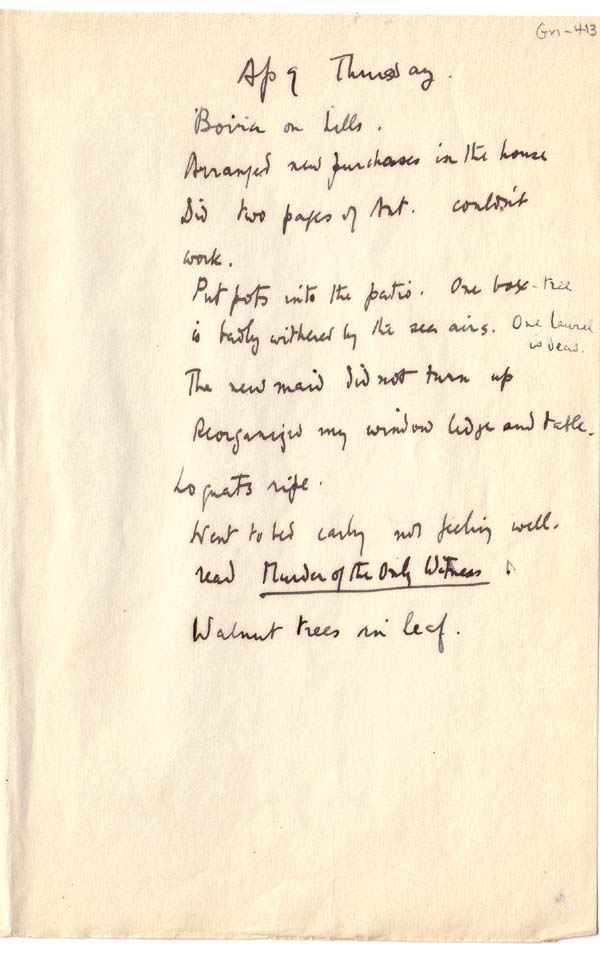 Gn-413
Ap 9 Thursday.
'Boira on hills.
Arranged new purchases in the house
Did two pages of Ant. couldn't
work.
Put pots into the patio. One box-tree
is badly withered by the sea airs. One laurel
is dead.
The new maid did not turn up
Reorganized my window ledge and table.
Loquats ripe.
Went to bed early not feeling well.
read Murder of the Only Witness
Walnut trees in leaf.